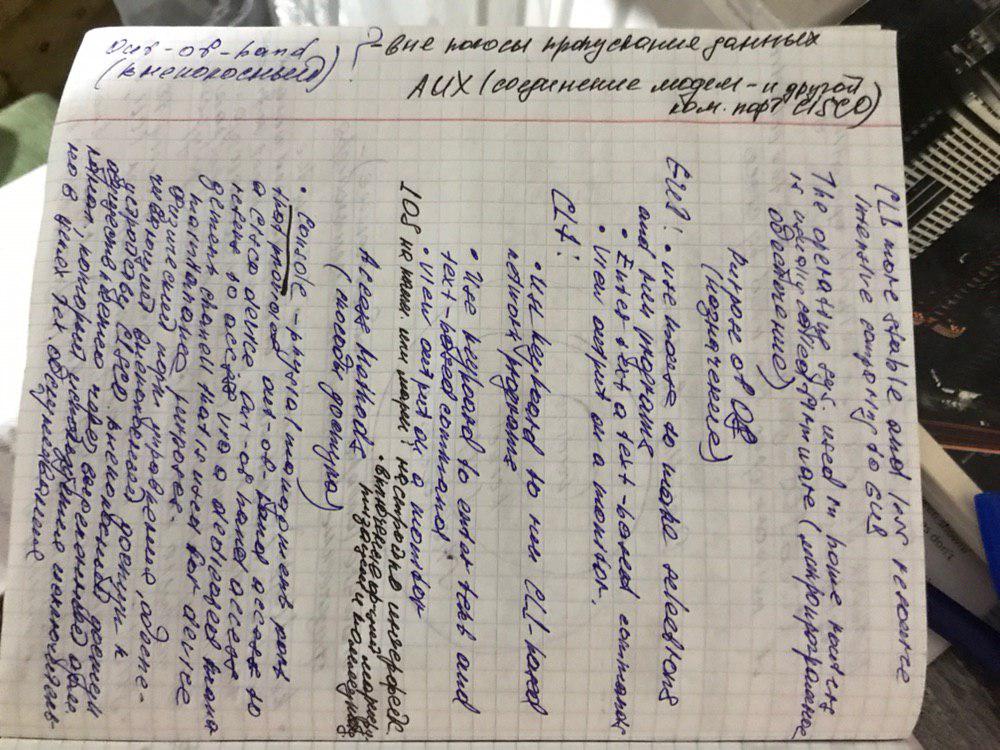 out-of-band
(внеполосный)
- вне полосы пропускание данных
AUX (соединение модем - и другой
ком. порт CISCO)
CLI more stable and less resource
intensive comparing to GUI
The operating sys. used in home routers
is usually called firmware (микропрограммное
обеспечение)
Purpose of OS
(назначение)
GUI: • use mouse to make selections
and run programs
• Enter text a text-based commands
• View output on a monitor.
CLI:
• use keyboard to run CLI-based
network programs
• Use keyboard to enter text and
text-based commands
• View output on a monitor
IOS на комм или марш: • настройка интерфейс.
• включение ф-ций маршру-
тизации и коммутац.
Access methods
(методы доступа)
• Console - physical management port
that provides out-of-band access to
a Cisco device. out-of-band access
refers to access via a dedicated
management channel that is used for device
maintenance purposes.
физический порт управления, обеспе-
чивающий внеполосный доступ к
устройству CISCO. внеполосный доступ
осуществляется через выделенный
канал, который используется
в целях тех. обслуживания